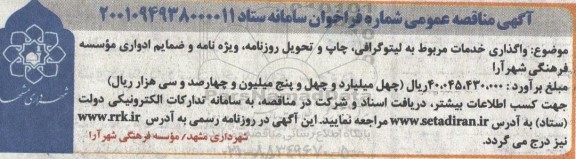 آگهی مناقصه عمومی شماره فراخوان سامانه ستاد ۲۰۰۱۰۹۴۹۳۸۰۰۰۰۱۱
موضوع: واگذاری خدمات مربوط به لیتوگرافی، چاپ و تحویل روزنامه، ویژه نامه و ضمایم ادواری مؤسسه
فرهنگی شهرآرا
مبلغ برآورد: ۴۰،۰۴۵،۴۳۰،۰۰۰ریال (چهل میلیارد و چهل و پنج میلیون و چهارصد و سی هزار ریال)
جهت کسب اطلاعات بیشتر، دریافت اسناد و شرکت در مناقصه، به سامانه تدارکات الکترونیکی دولت
(ستاد) به آدرس www.setadiran.ir مراجعه نمایید. این آگهی در روزنامه رسمی به آدرس www.rrk.ir
نیز درج می گردد.
شهرداری مشهد/ مؤسسه فرهنگی شهرآرا
شهرداری مشهد